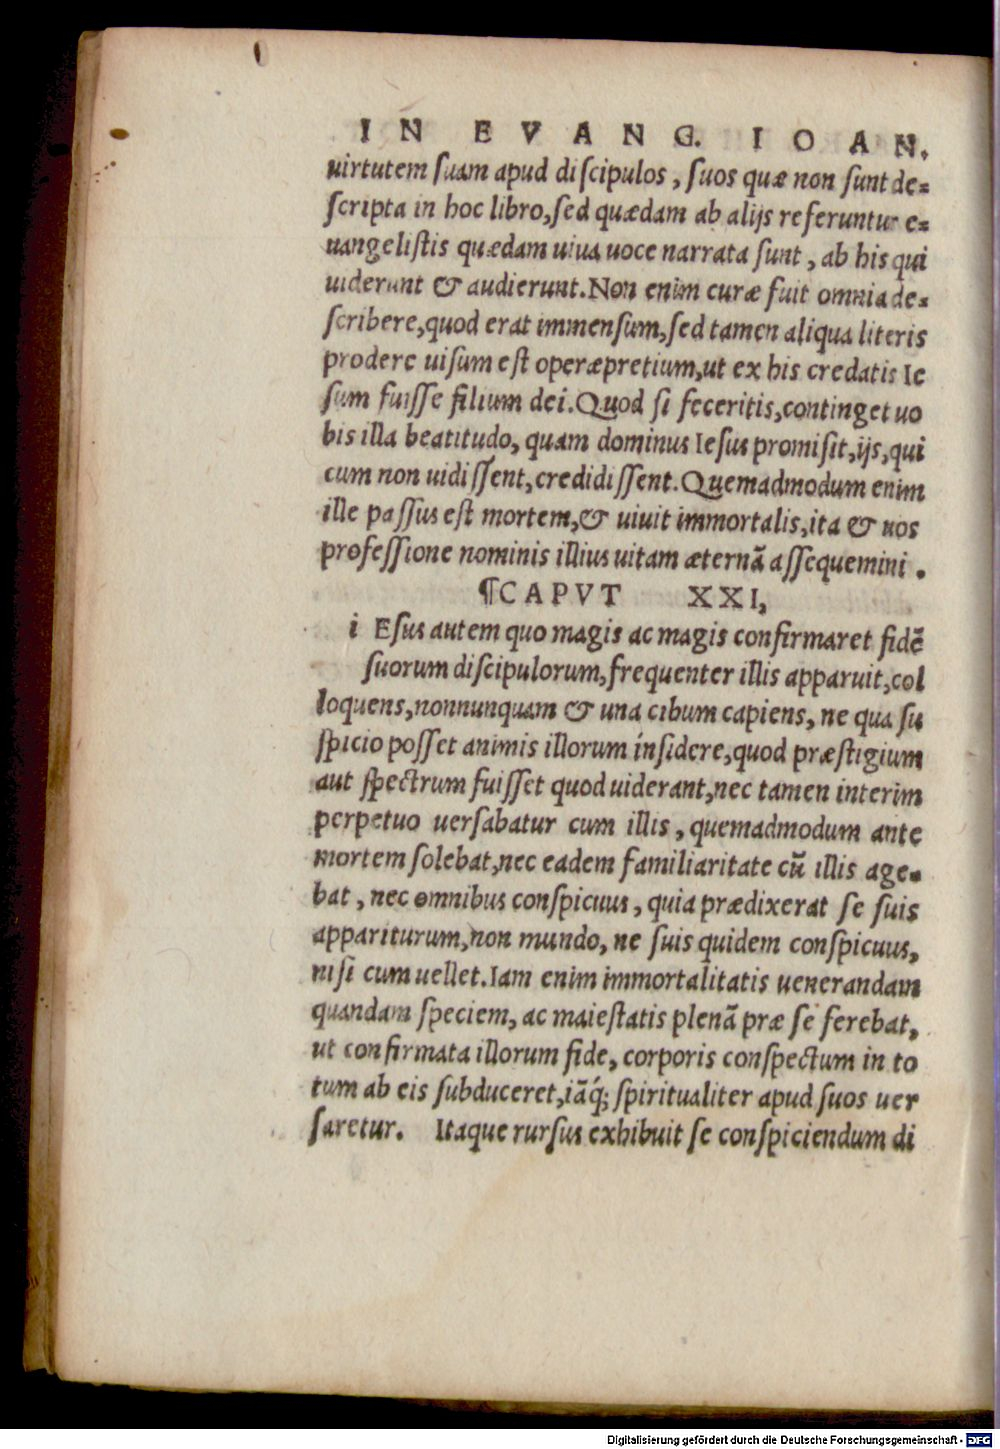 IN EVANG. IOAN.
uirtutem suam apud discipulos, suos quæ non sunt de=
scripta in hoc libro, sed quædam ab alijs referuntur e=
uangelistis quædam uiua uoce narrata sunt, ab his qui
uiderunt & audierunt. Non enim curæ fuit omnia de=
scribere, quod erat immensum, sed tamen aliqua literis
prodere uisum est operæpretium, ut ex his credatis Ie
sum fuisse filium dei. Quod si feceritis, continget uo
bis illa beatitudo, quam dominus Iesus promisit, ijs, qui
cum non uidissent, credidissent. Quemadmodum enim
ille passus est mortem, & uiuit immortalis, ita & uos
professione nominis illius uitam æternā assequemini.
¶CAPVT XXI,
i Esus autem quo magis ac magis confirmaret fidē
suorum discipulorum, frequenter illis apparuit, col
loquens, nonnunquam & una cibum capiens, ne qua su
spicio posset animis illorum ínsidere, quod præstigium
aut spectrum fuisset quod uiderant, nec tamen interim
perpetuo uersabatur cum illis, quemadmodum ante
mortem solebat, nec eadem familiaritate cū illis age=
bat, nec omnibus conspicuus, quia prædixerat se suis
appariturum, non mundo, ne suis quidem conspicuus,
nisi cum uellet. Iam enim immortalitatis uenerandam
quandam speciem, ac maiestatis plenā præ se ferebat,
ut confirmata illorum fide, corporis conspectum in to
tum ab eis subduceret, iāq́; spiritualiter apud suos uer
saretur. Itaque rursus exhibuit se conspiciendum di
Digitalisierung gefördert durch die Deutsche Forschungsgemeinschaft - DFG